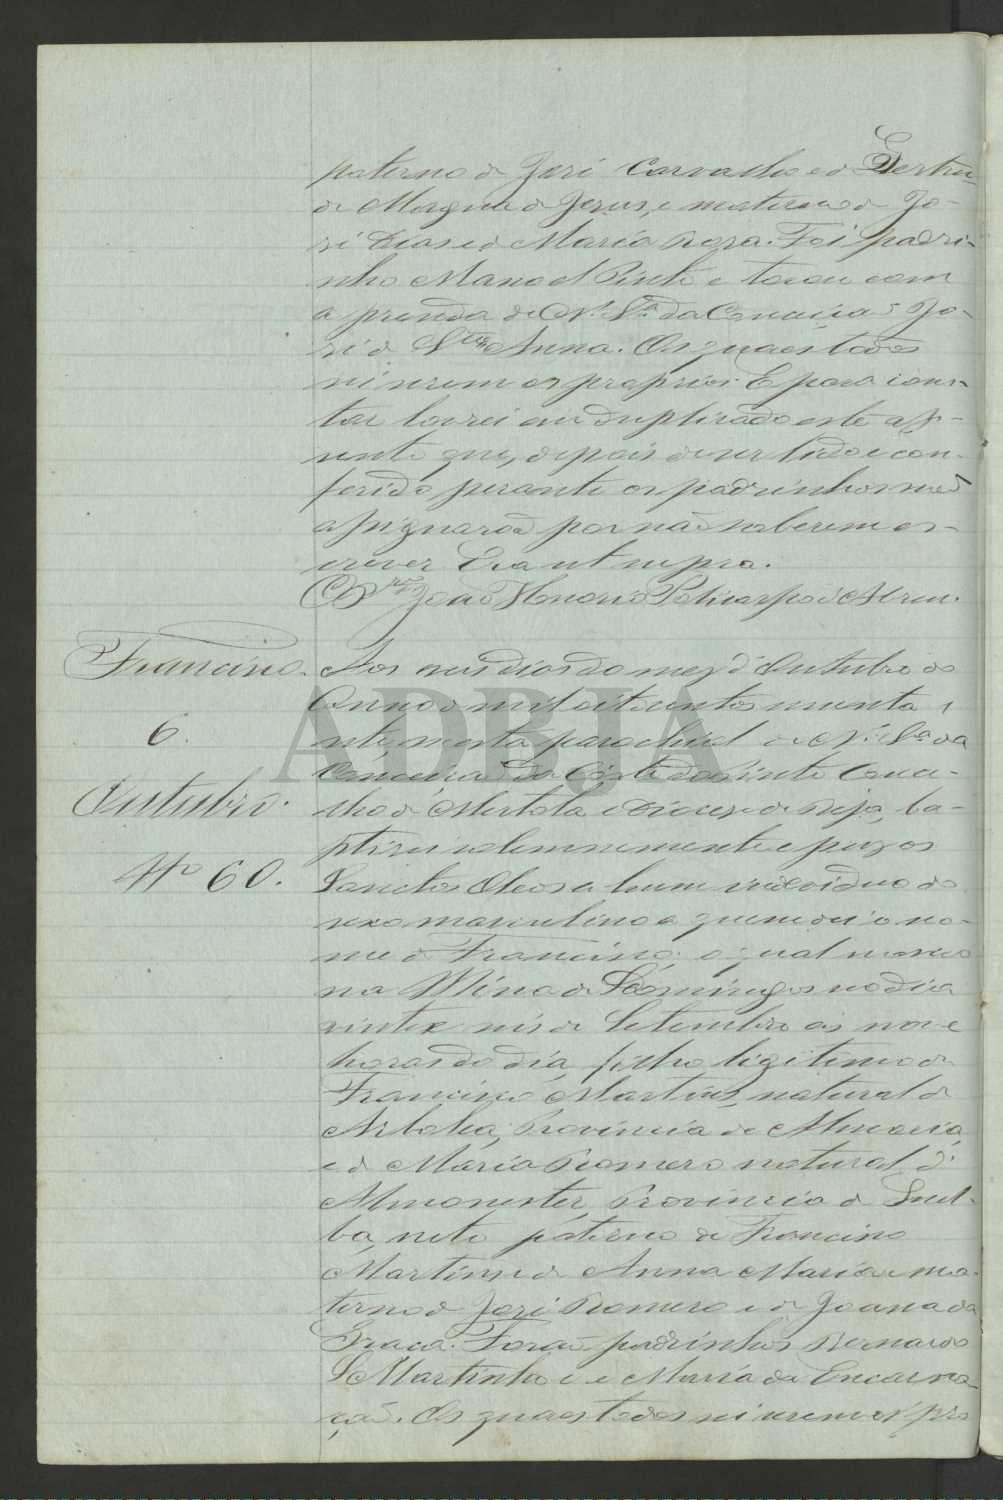 paterno de José Carvalho e de Gertru-
de Magna de Jesus, e materno de Jo-
sé Dias e de Maria Roza. Foi padri-
nho Manoel Pinto e tocou com
a prenda de N. Sª da Conceição Jo-
sé de Stª Anna. Os quaes todos
sei serem os proprios. E para cons-
tar lavrei em duplicado este as-
sento que, depois de ser lido e con-
ferido perante os padrinhos não
assignarão por não saberem es-
crever Era ut supra.
O Pʳ João Honorio Policarpo d'Abreu.
Francisco.
6.
Outubro.
Nº 60.
Aos seis dias do mez d'Outubro do
Anno de mil oitocentos e
nesta parochial de N. Sª da
Conceição da Côrte do Pinto Conce-
lho de Mertola e Diocese de Beja, ba-
ptizei solemnemente e puz os
Sanctos Oleos a hum individuo do
sexo masculino a quem dei o no-
me de Francisco, o qual nasceu
na Mina de S. Domingos no dia
vinte e seis de Setembro ás nove
horas do dia, filho legitimo de
Francisco Martins, natural de
Arboleas, Provincia de Almeria,
e de Maria Romero natural d'
Almonaster, Provincia de Huel-
va, neto paterno de Francisco
Martins e de Anna Maria e ma-
terno de José Romero e de Joana da
Graça. Forão padrinhos Bernardo
Martinho e Maria da Encarna-
ção. Os quaes todos sei serem os pro
ADBJA